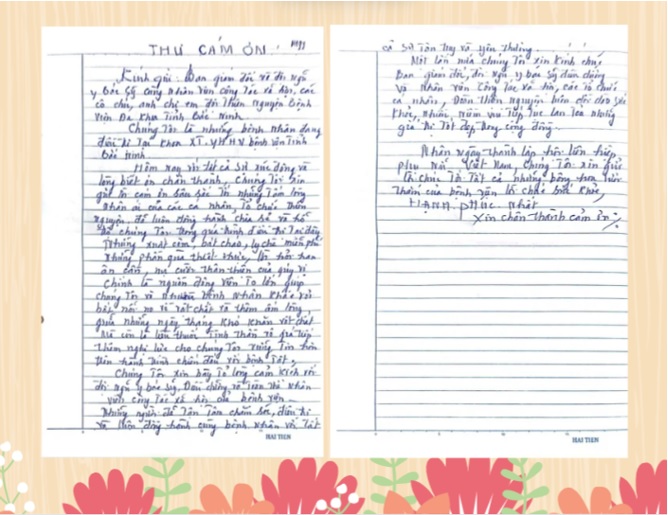 THƯ CẢM ƠN
Kính gửi: Ban giám đốc và đội ngũ
y Bác sỹ, công nhân viên công tác xã hội, các
cô chú, anh chị em đội Thiện nguyện Bệnh
Viện Đa Khoa Tỉnh Bắc Ninh
Chúng Tôi là những bệnh nhân đang
điều trị Tại khoa bệnh viện Tỉnh
Bắc Ninh
Hôm nay với tất cả sự xúc động và
lòng biết ơn chân thành, Chúng Tôi xin
gửi lời cảm ơn sâu sắc Tới những Tấm lòng
nhân ái của các cá nhân, Tổ chức thiện
nguyện, đã luôn đồng hành chia sẻ và hỗ
trợ chúng Tôi Trong quá trình điều trị Tại đây
Những xuất cơm, bát cháo, ly chè miễn phí
Những phần quà thiết thực, lời hỏi han
ân cần, nụ cười thân thiện của quý vị
Chính là nguồn động viên To lớn giúp
chúng Tôi và những bệnh nhân khác với
bớt nỗi lo và thêm ấm lòng
những ngày tháng khó khăn
mà còn là liều thuốc Tinh Thần vô giá tiếp
thêm nghị lực cho chúng Tôi vững Tin hơn
Trên hành trình chiến đấu với bệnh Tật.
Chúng Tôi xin bày Tỏ lòng cảm kích với
đội ngũ y bác sỹ, Điều dưỡng và nhân
viên công tác xã hội của bệnh viện
Những người đã Tận Tâm chăm sóc, điều trị
và luôn đồng hành cùng bệnh nhân với Tất
HẢI TIẾN
cả Sự Tận Tụy và yêu thương.
Một lần nữa chúng Tôi xin kính chúc
Ban giám đốc, đội ngũ y bác sỹ, điều dưỡng
và nhân viên công tác xã hội, các tổ chức
cá nhân, Đoàn Thiện nguyện luôn dồi dào sức
khỏe, nhiều niềm vui tiếp tục lan tỏa những
giá trị Tốt đẹp trong cộng đồng.
Nhân ngày thành lập hội liên hiệp
phụ Nữ Việt Nam, Chúng Tôi xin gửi
lời chúc Tới Tất cả những bông hoa
của bệnh viện lời chúc sức khỏe,
HẠNH PHÚC Nhất
Xin chân thành cảm ơn
HẢI TIẾN